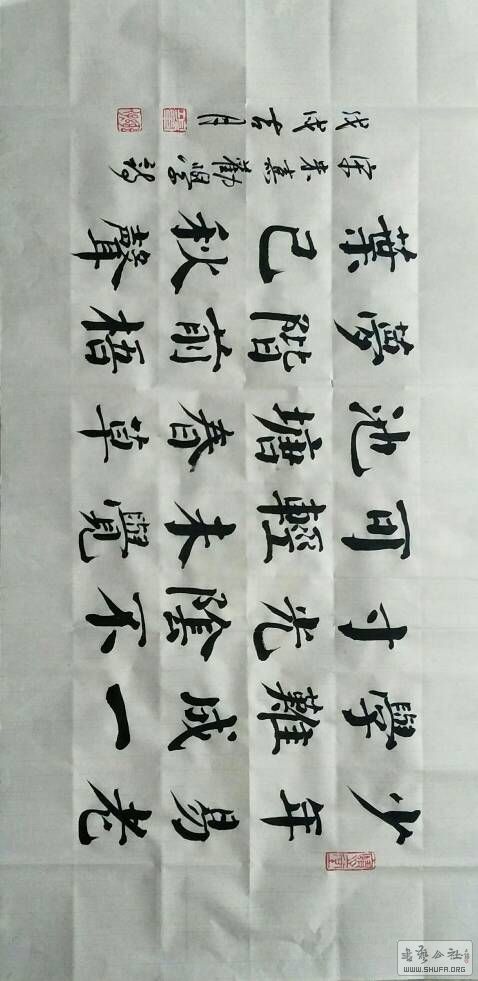 少年易老
學難成一
寸光陰不
可輕未覺
池塘春草
夢階前梧
葉已秋聲
宋朱熹勸學詩
戊戌吉月
书艺公社
WWW.SHUFA.ORG